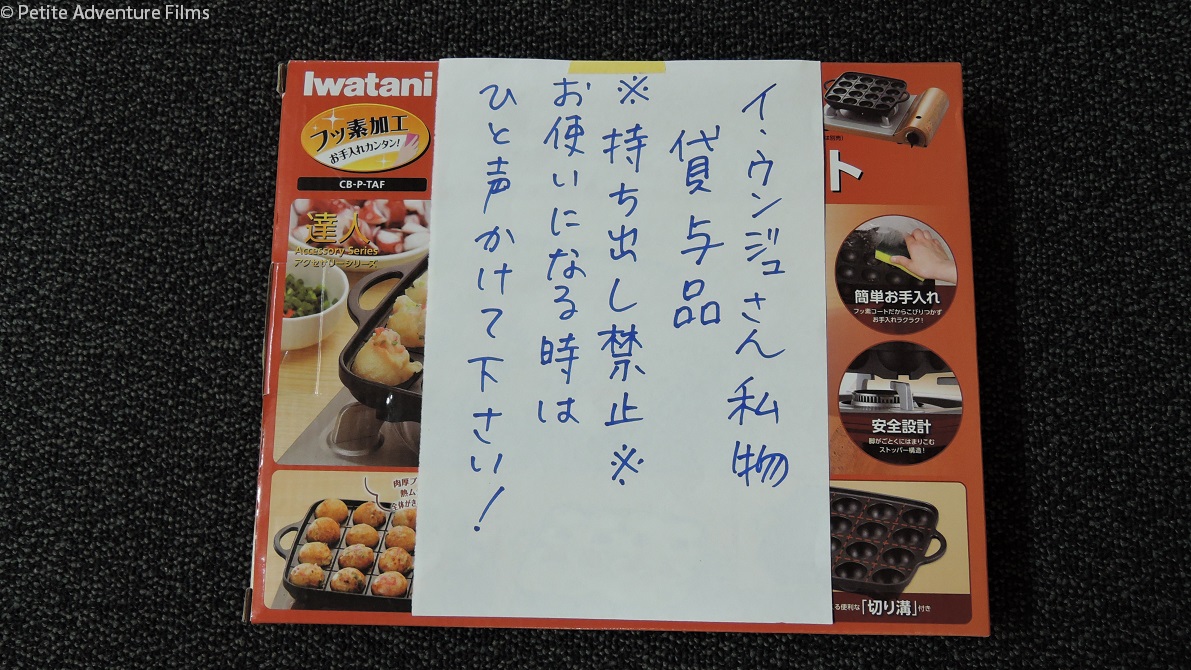 © Petite Adventure Films
Iwatani
フッ素加工
お手入れカンタン!
CB-P-TAF
達人
Accessory Series
アクセサリーシリーズ
肉厚プ
熱ム
全体がき
イ・ウンジュさん私物
貸与品
※持ち出し禁止※
お使いになる時は
ひと声かけて下さい!
ト
簡単お手入れ
フッ素コートだからこびりつかず
お手入れラクラク!
安全設計
脚がごとくにはまりこむ
ストッパー構造!
る便利な「切り溝」付き